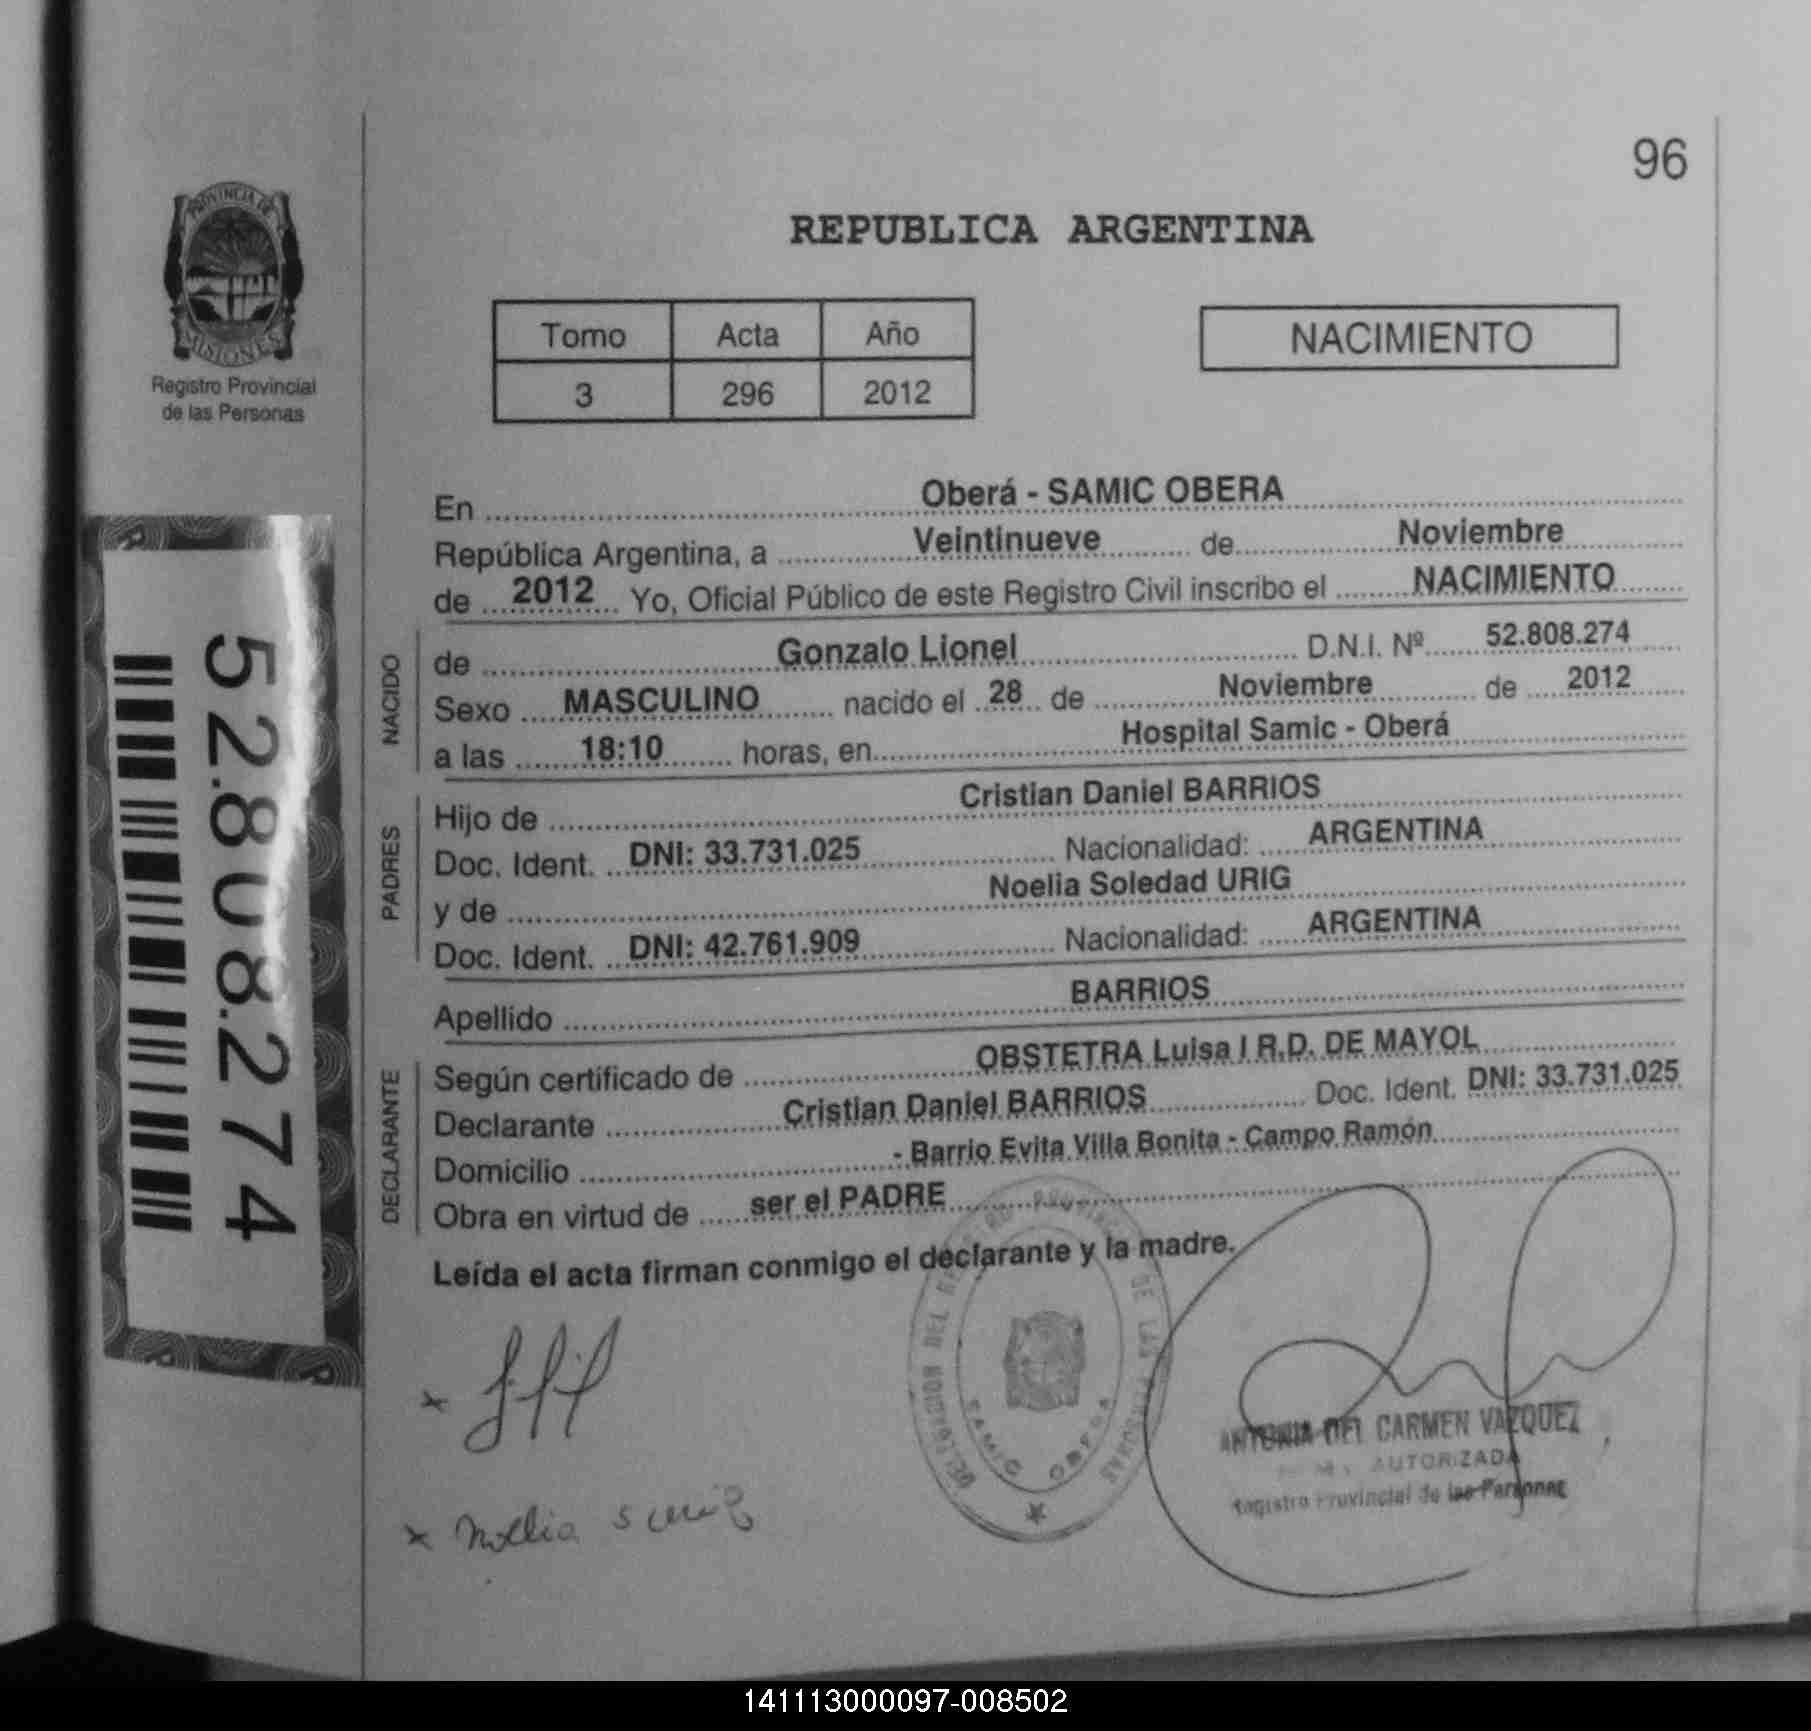 96
PROVINCIA DE
MISIONES
Registro Provincial
de las Personas
REPUBLICA ARGENTINA
Tomo Acta Año
3 296 2012
NACIMIENTO
52.808.274
En Oberá - SAMIC OBERA
República Argentina, a Veintinueve de Noviembre
de 2012 Yo, Oficial Público de este Registro Civil inscribo el NACIMIENTO
NACIDO
de Gonzalo Lionel D.N.I. Nº 52.808.274
Sexo MASCULINO nacido el 28 de Noviembre de 2012
a las 18:10 horas, en Hospital Samic - Oberá
PADRES
Hijo de Cristian Daniel BARRIOS
Doc. Ident. DNI: 33.731.025 Nacionalidad: ARGENTINA
y de Noelia Soledad URIG
Doc. Ident. DNI: 42.761.909 Nacionalidad: ARGENTINA
Apellido BARRIOS
DECLARANTE
Según certificado de OBSTETRA Luisa I R.D. DE MAYOL
Declarante Cristian Daniel BARRIOS Doc. Ident. DNI: 33.731.025
Domicilio - Barrio Evita Villa Bonita - Campo Ramón
Obra en virtud de ser el PADRE
Leída el acta firman conmigo el declarante y la madre.
DELEGACION DEL PROVINCIAL DE LAS PERSONAS
SAMIC OBERA
x
x Noelia S urig
ANTONIA DEL CARMEN VAZQUEZ
AUTORIZADA
Registro Provincial de las Personas
141113000097-008502